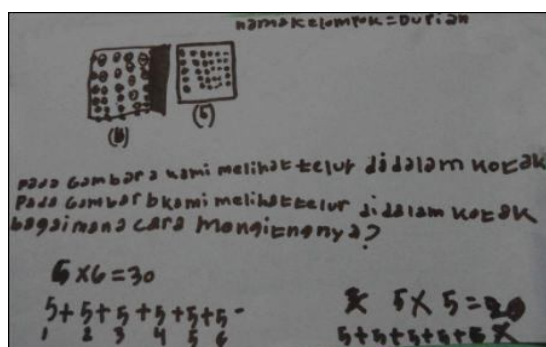 nama kelompok = Durian
(a) (b)
Pada Gambar a kami melihat telur didalam kotak
Pada Gambar b kami melihat telur didalam kotak
bagaimana cara Mengitngnya?
6 x 6 = 30
5+5+5+5+5+5=
1 2 3 4 5 6
5 x 5 = 20
5+5+5+5+5